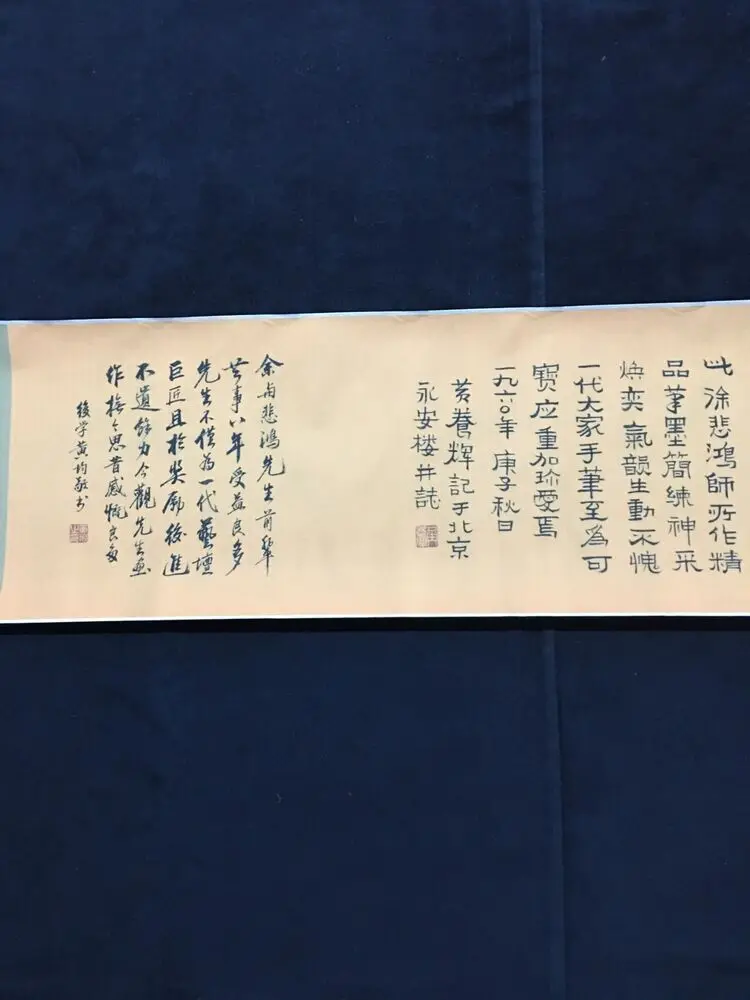 此徐悲鴻師所作精
品筆墨簡練神采
焕奕氣韻生動不愧
一代大家手筆至為可
寶应重加珍愛焉
一九六〇年庚子秋日
黄養輝記于北京
永安楼并誌
余与悲鴻先生前輩
共事八年受益良多
先生不僅為一代藝壇
巨匠且於奬勵後進
不遺餘力今觀先生画
作撫今思昔感慨良多
後学黄均敬书